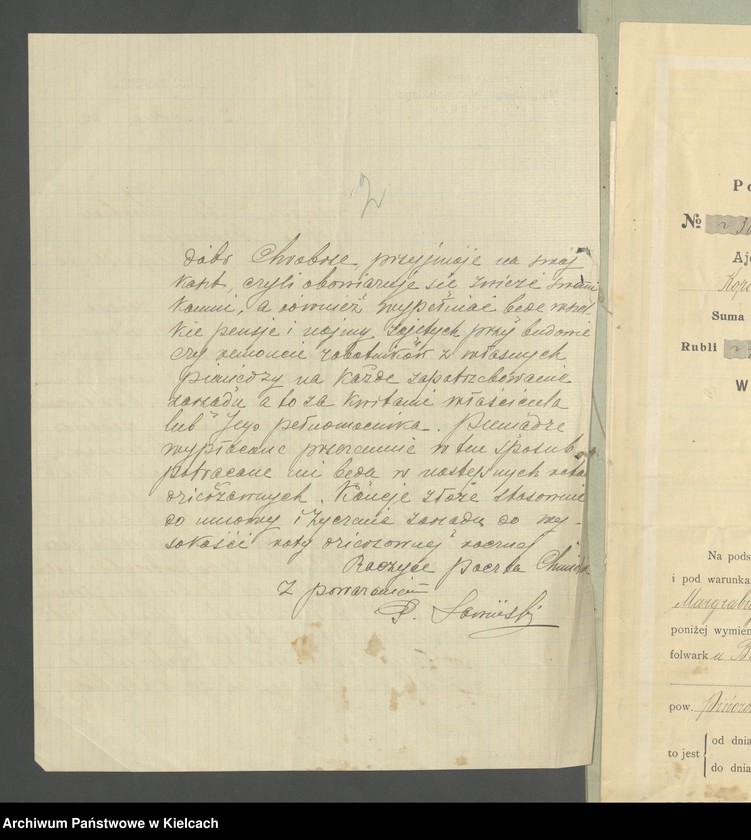 2
dóbr Chrobrze przyjmuje na swój
koszt, czyli obowiązuje się zwieźć swemi
końmi, a również wypełniać będę wszel-
kie pensje i najmy zajętych przy budowie
czy remoncie robotników z własnych
pieniędzy na każde zapotrzebowanie
zarządu a to za kwitami właściciela
lub Jego pełnomocnika. Pieniądze
wypłacane przezemnie w ten sposób
potrącane mi będą w następnych ratach
dzierżawnych. Kaucję złożę stosownie
do umowy i życzenia zarządu do wy-
sokości raty dzierżawnej rocznej
Raczyce poczta Chmielnik
Z poważaniem
Po
№
Aj
Suma
Rubli
W
Na pods
i pod warunka
Margrabi
poniżej wymien
folwark
pow. Pińczo
to jest
od dnia
do dnia
Archiwum Państwowe w Kielcach